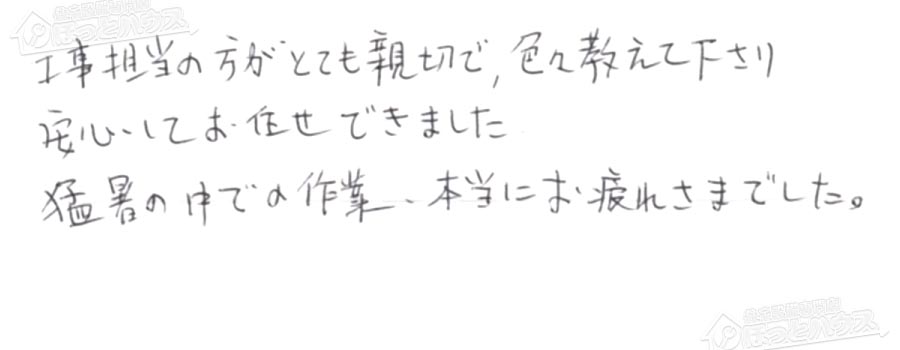 工事担当の方がとても親切で、色々教えて下さり
安心してお任せできました
猛暑の中での作業、本当にお疲れさまでした。
ほっとハウス
ほっとハウス